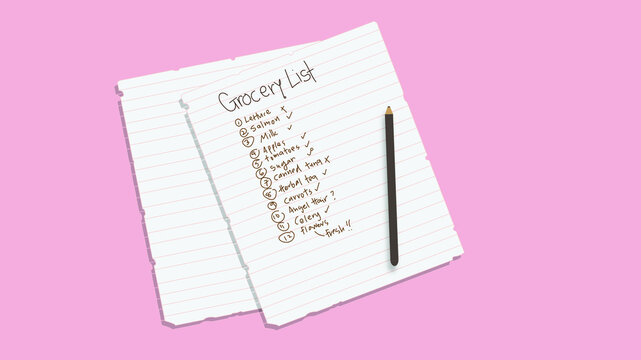 Grocery List
① Lettuce x
② Salmon ✓
③ Milk ✓
④ Apples ✓
⑤ tomatoes ✓
⑥ sugar
⑦ canned tuna x
⑧ Herbal tea ✓
⑨ carrots ✓
⑩ Angel Hair ?
⑪ Celery ✓
⑫ flowers
fresh!!